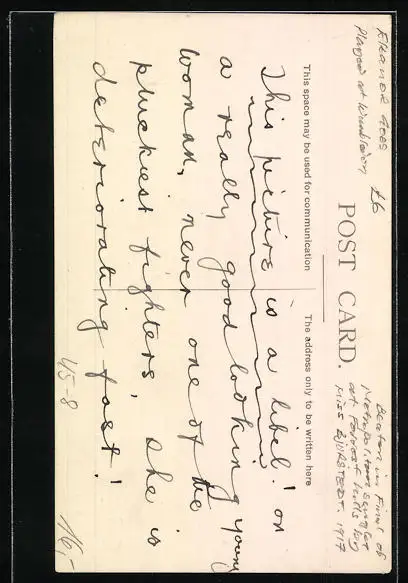 Eleanor Goss
Played at Wimbledon
£6
Beaten in Final of
Metropolitan singles
at Forest Hills by
Miss Bjurstedt. 1917
POST CARD.
This space may be used for communication
The address only to be written here
This picture is a libel! on
a really good looking young
woman, never one of the
pluckiest fighters, she is
deteriorating fast!
45-8
16,-